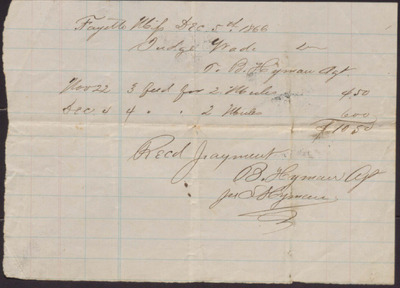 Fayette Miss Dec. 5th 1866
Judge Wade Dr
To B. Hyman Agt
Nov 22 3 feed for 2 Mules 4.50
Dec. 4 4 " " 2 Mules 6.00
$10.50
Recd payment
B. Hyman Agt
Hyman